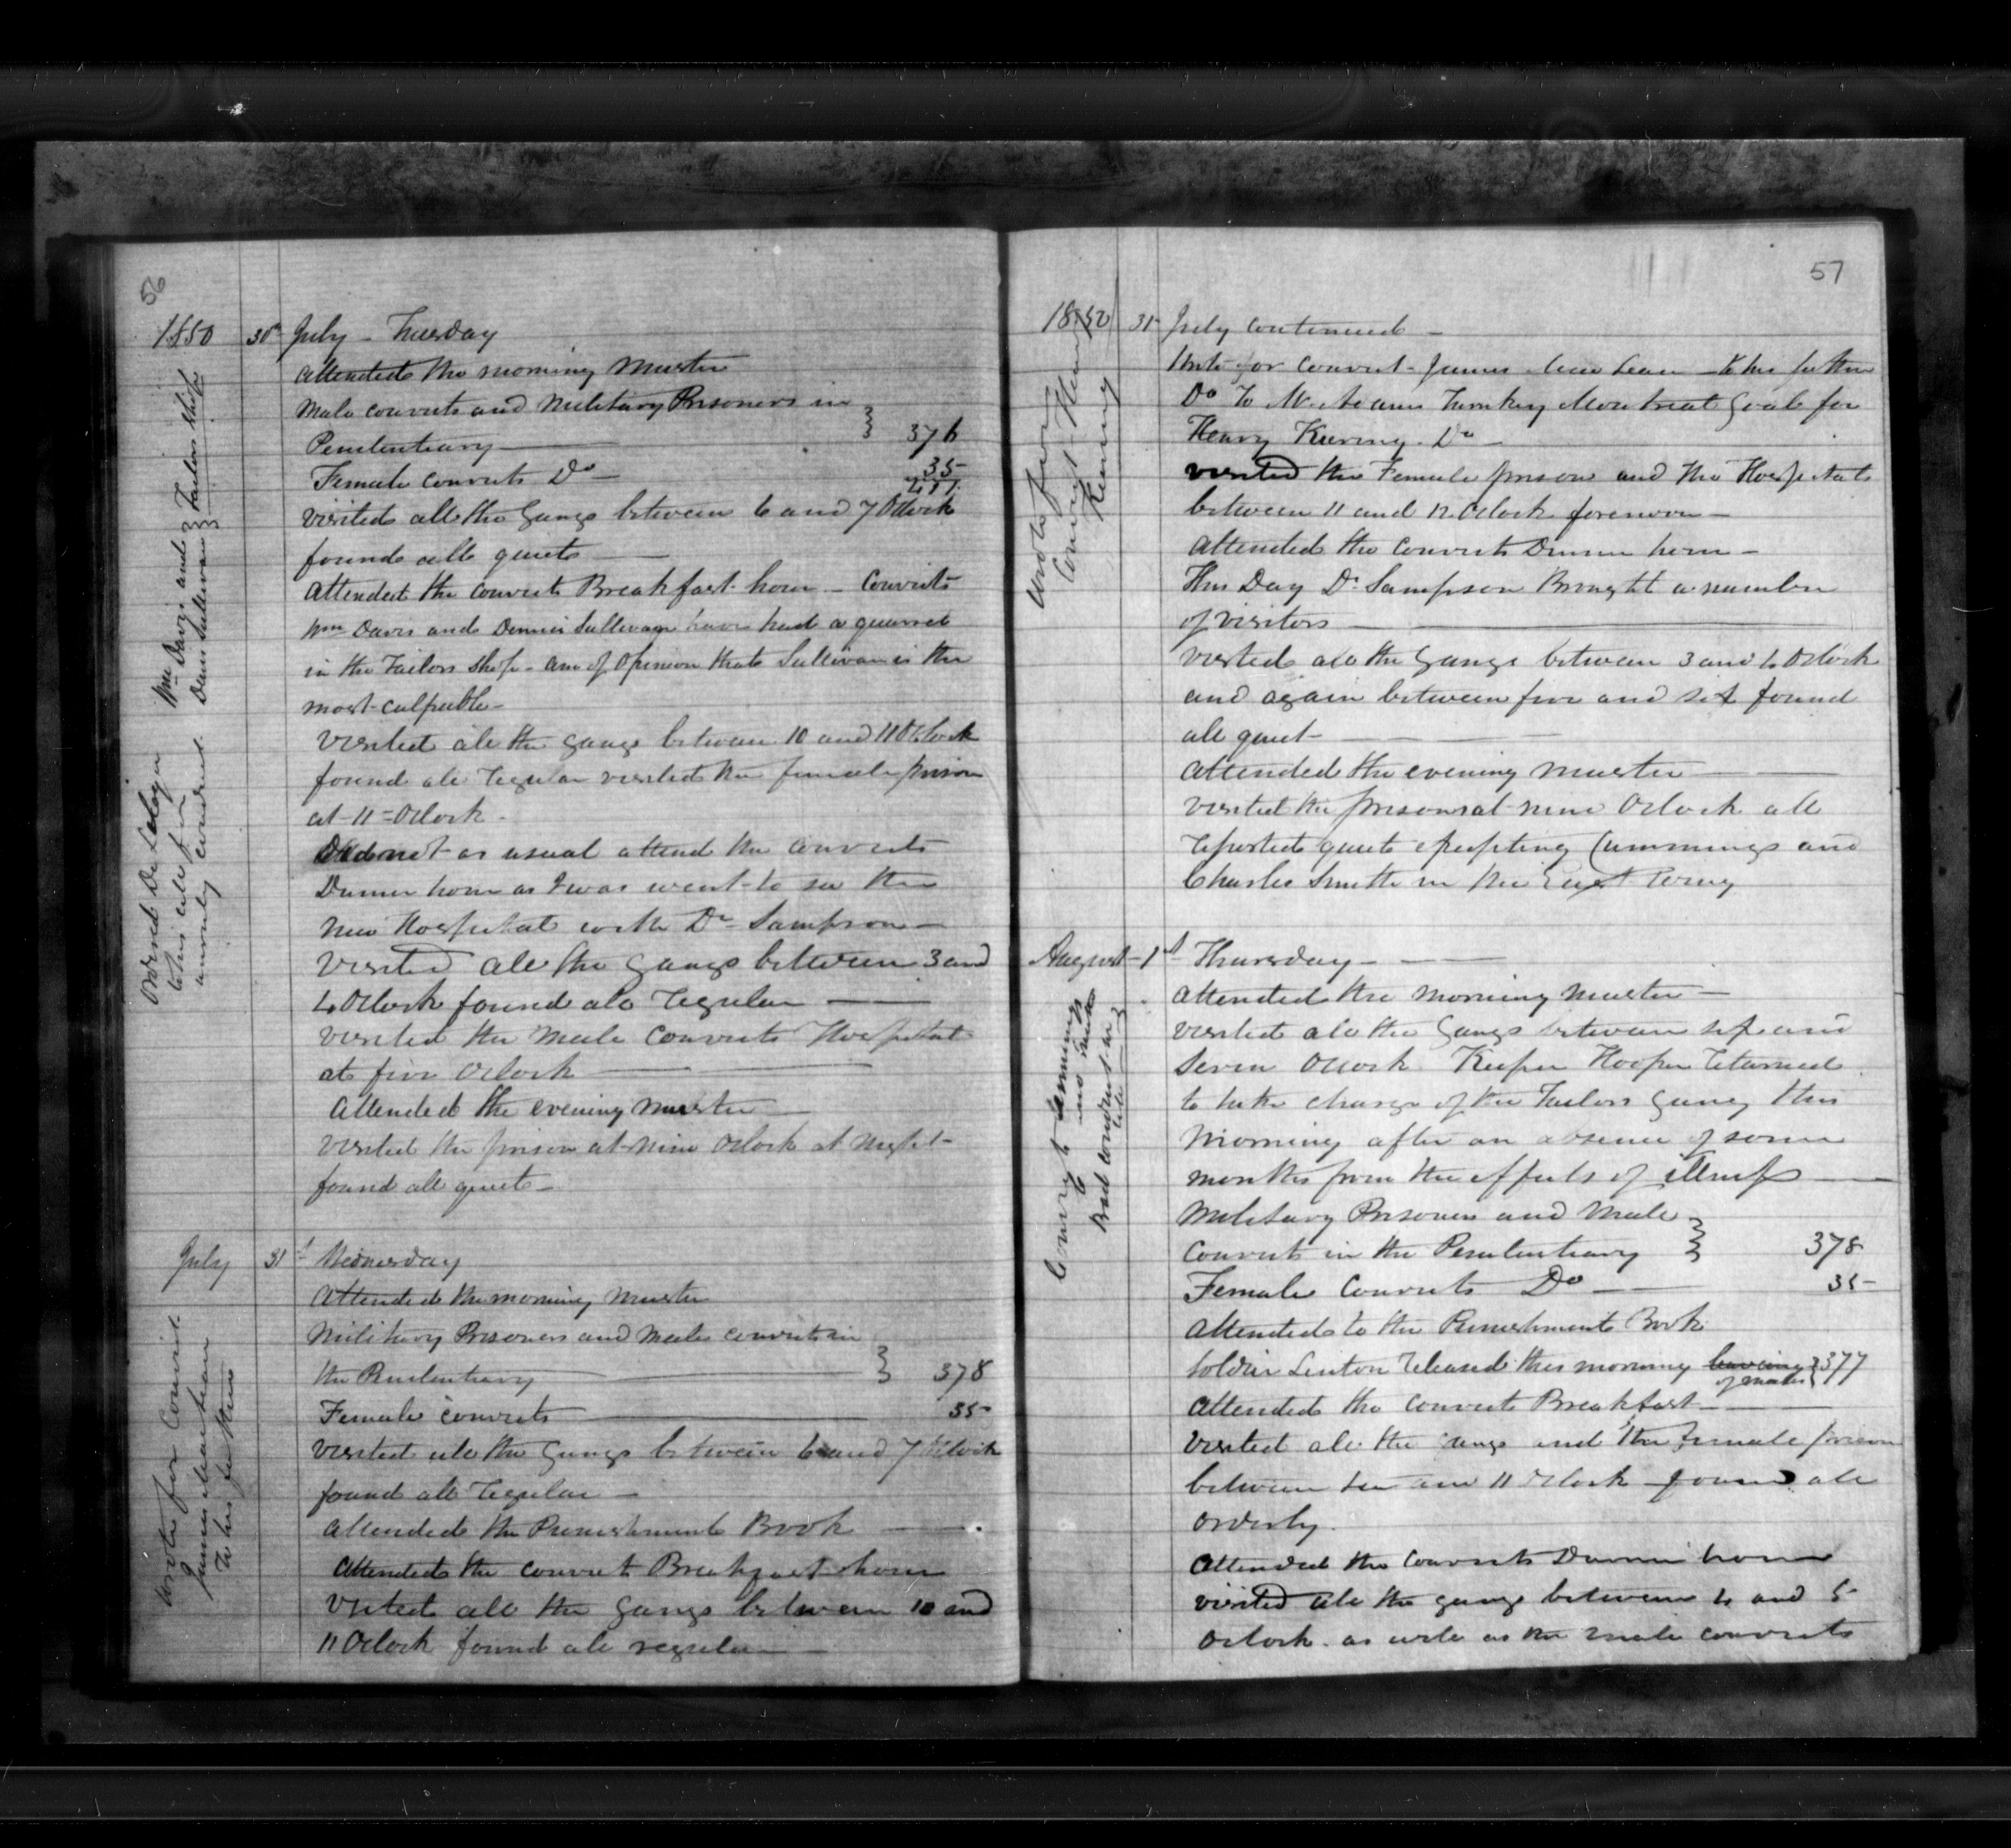 56
1850 30th July - Tuesday
Attended the morning Muster
Male convicts and Military Prisoners in
Penitentiary 376
Female convicts Do 35
411
visited all the Gangs between 6 and 7 OClock
found all quiet
Attended the convicts Breakfast hour - Convicts
Wm Davis and Dennis Sullivan have had a quarrel
in the Tailors Shop - am of opinion that Sullivan is the
most culpable -
Wm Davis and Tailors Shop
Denis Sullivan
visited all the gangs between 10 and 11 OClock
found all regular visited the female prison
at 11 - OClock -
Did not as usual attend the convicts
Dinner hour as I was went to see the
New Hospital with Dr Sampson -
visited all the Gangs between 3 and
4 OClock found all regular
visited the male convicts Hospital
at five OClock
Attended the evening muster
visited the prison at nine OClock at night -
found all quiet -
to his cell for
July 31st Wednesday
Attended the morning Muster
Military Prisoners and Male convicts in
the Penitentiary 378
Female convicts 35
visited all the Gangs between 6 and 7 OClock
found all regular -
Attended the Punishment Book
Attended the convicts Breakfast hour
Visited all the Gangs between 10 and
11 OClock found all regular
Wrote for Convict
James
to his father
57
1850 31 July continued -
Wrote for Convict - James to his father
Do To Mr Turnkey Montreal Goal for
Henry Do -
visited the Female prison and the Hospital
between 11 and 12 OClock forenoon -
Attended the convicts Dinner hour -
This Day Dr Sampson Brought a number
of visitors
visited all the Gangs between 3 and 4 OClock
and again between five and six found
all quiet -
Attended the evening muster
visited the prison at nine OClock all
reported quiet excepting Cummings and
Charles Smith in the East Wing
Wrote for
Convict Henry
August 1st Thursday -
Attended the morning muster -
visited all the Gangs between six and
Seven OClock Keeper Hooper returned
to take charge of the Tailors Gang this
morning after an absence of some
months from the effects of illness
Military Prisoners and Male
Convicts in the Penitentiary 378
Female Convicts Do 35 -
Attended to the Punishment Book
Soldier Linton released this morning leaving 377
of males
Attended the Convicts Breakfast
Visited all the Gangs and the Female prison
between ten and 11 OClock found all
orderly.
Attended the Convicts Dinner hour
visited all the gangs between 4 and 5
OClock as well as the male convicts
Convict Cummings
and Smith
Bad conduct in